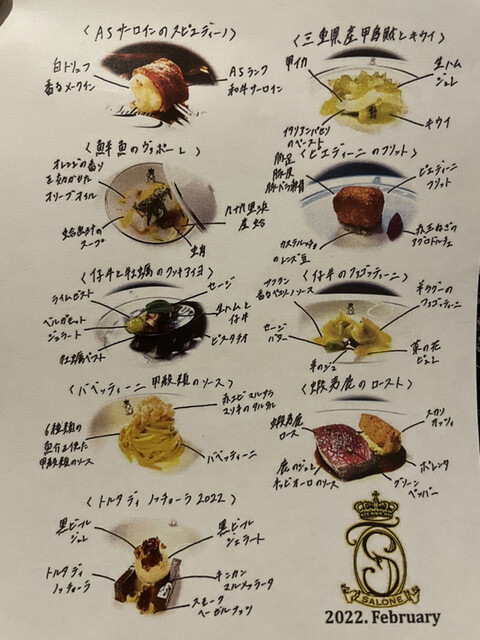 〈A5サーロインのスピエディーノ〉
白トリュフ
香るメークイン
A5ランク
和牛サーロイン
〈三重県産甲烏賊とキウイ〉
甲イカ
生ハム
ジュレ
イタリアンパセリ
のペースト
キウイ
〈鮮魚のヴァポーレ〉
オレンジの香り
を効かせた
オリーブオイル
蛤出汁の
スープ
九十九里浜
産 蛤
〈ピエディーニのフリット〉
豚足
豚炭
ピエディーニ
フリット
カステルッチョ
のレンズ豆
赤玉ねぎの
アグロドルチェ
〈仔牛と牡蠣のクッキアイヨ〉
セージ
ライムゼスト
ベルガモット
ジェラート
牡蠣ペースト
生ハムと
仔牛
ピスタチオ
〈仔羊のファゴッティーニ〉
サフラン
香るペコリーノソース
羊ラグーの
ファゴッティーニ
セージ
バター
羊のジュ
菜の花
ピュレ
〈バベッティーニ 甲殻類のソース〉
赤エビ
ユリネのタルタル
6種類の
魚介を使た
甲殻類のソース
バベッティーニ
〈蝦夷鹿のロースト〉
蝦夷鹿
ロース
スカリ
オッツィ
鹿のジュと
ネッビオーロのソース
ポレンタ
グリーン
ペッパー
〈トルタ ディ ノッチョーラ 2022〉
黒ビール
ジュレ
黒ビール
ジェラート
トルタ ディ
ノッチョーラ
キンカン
マルメッラータ
スモーク
ヘーゼルナッツ
SALONE
2022. February